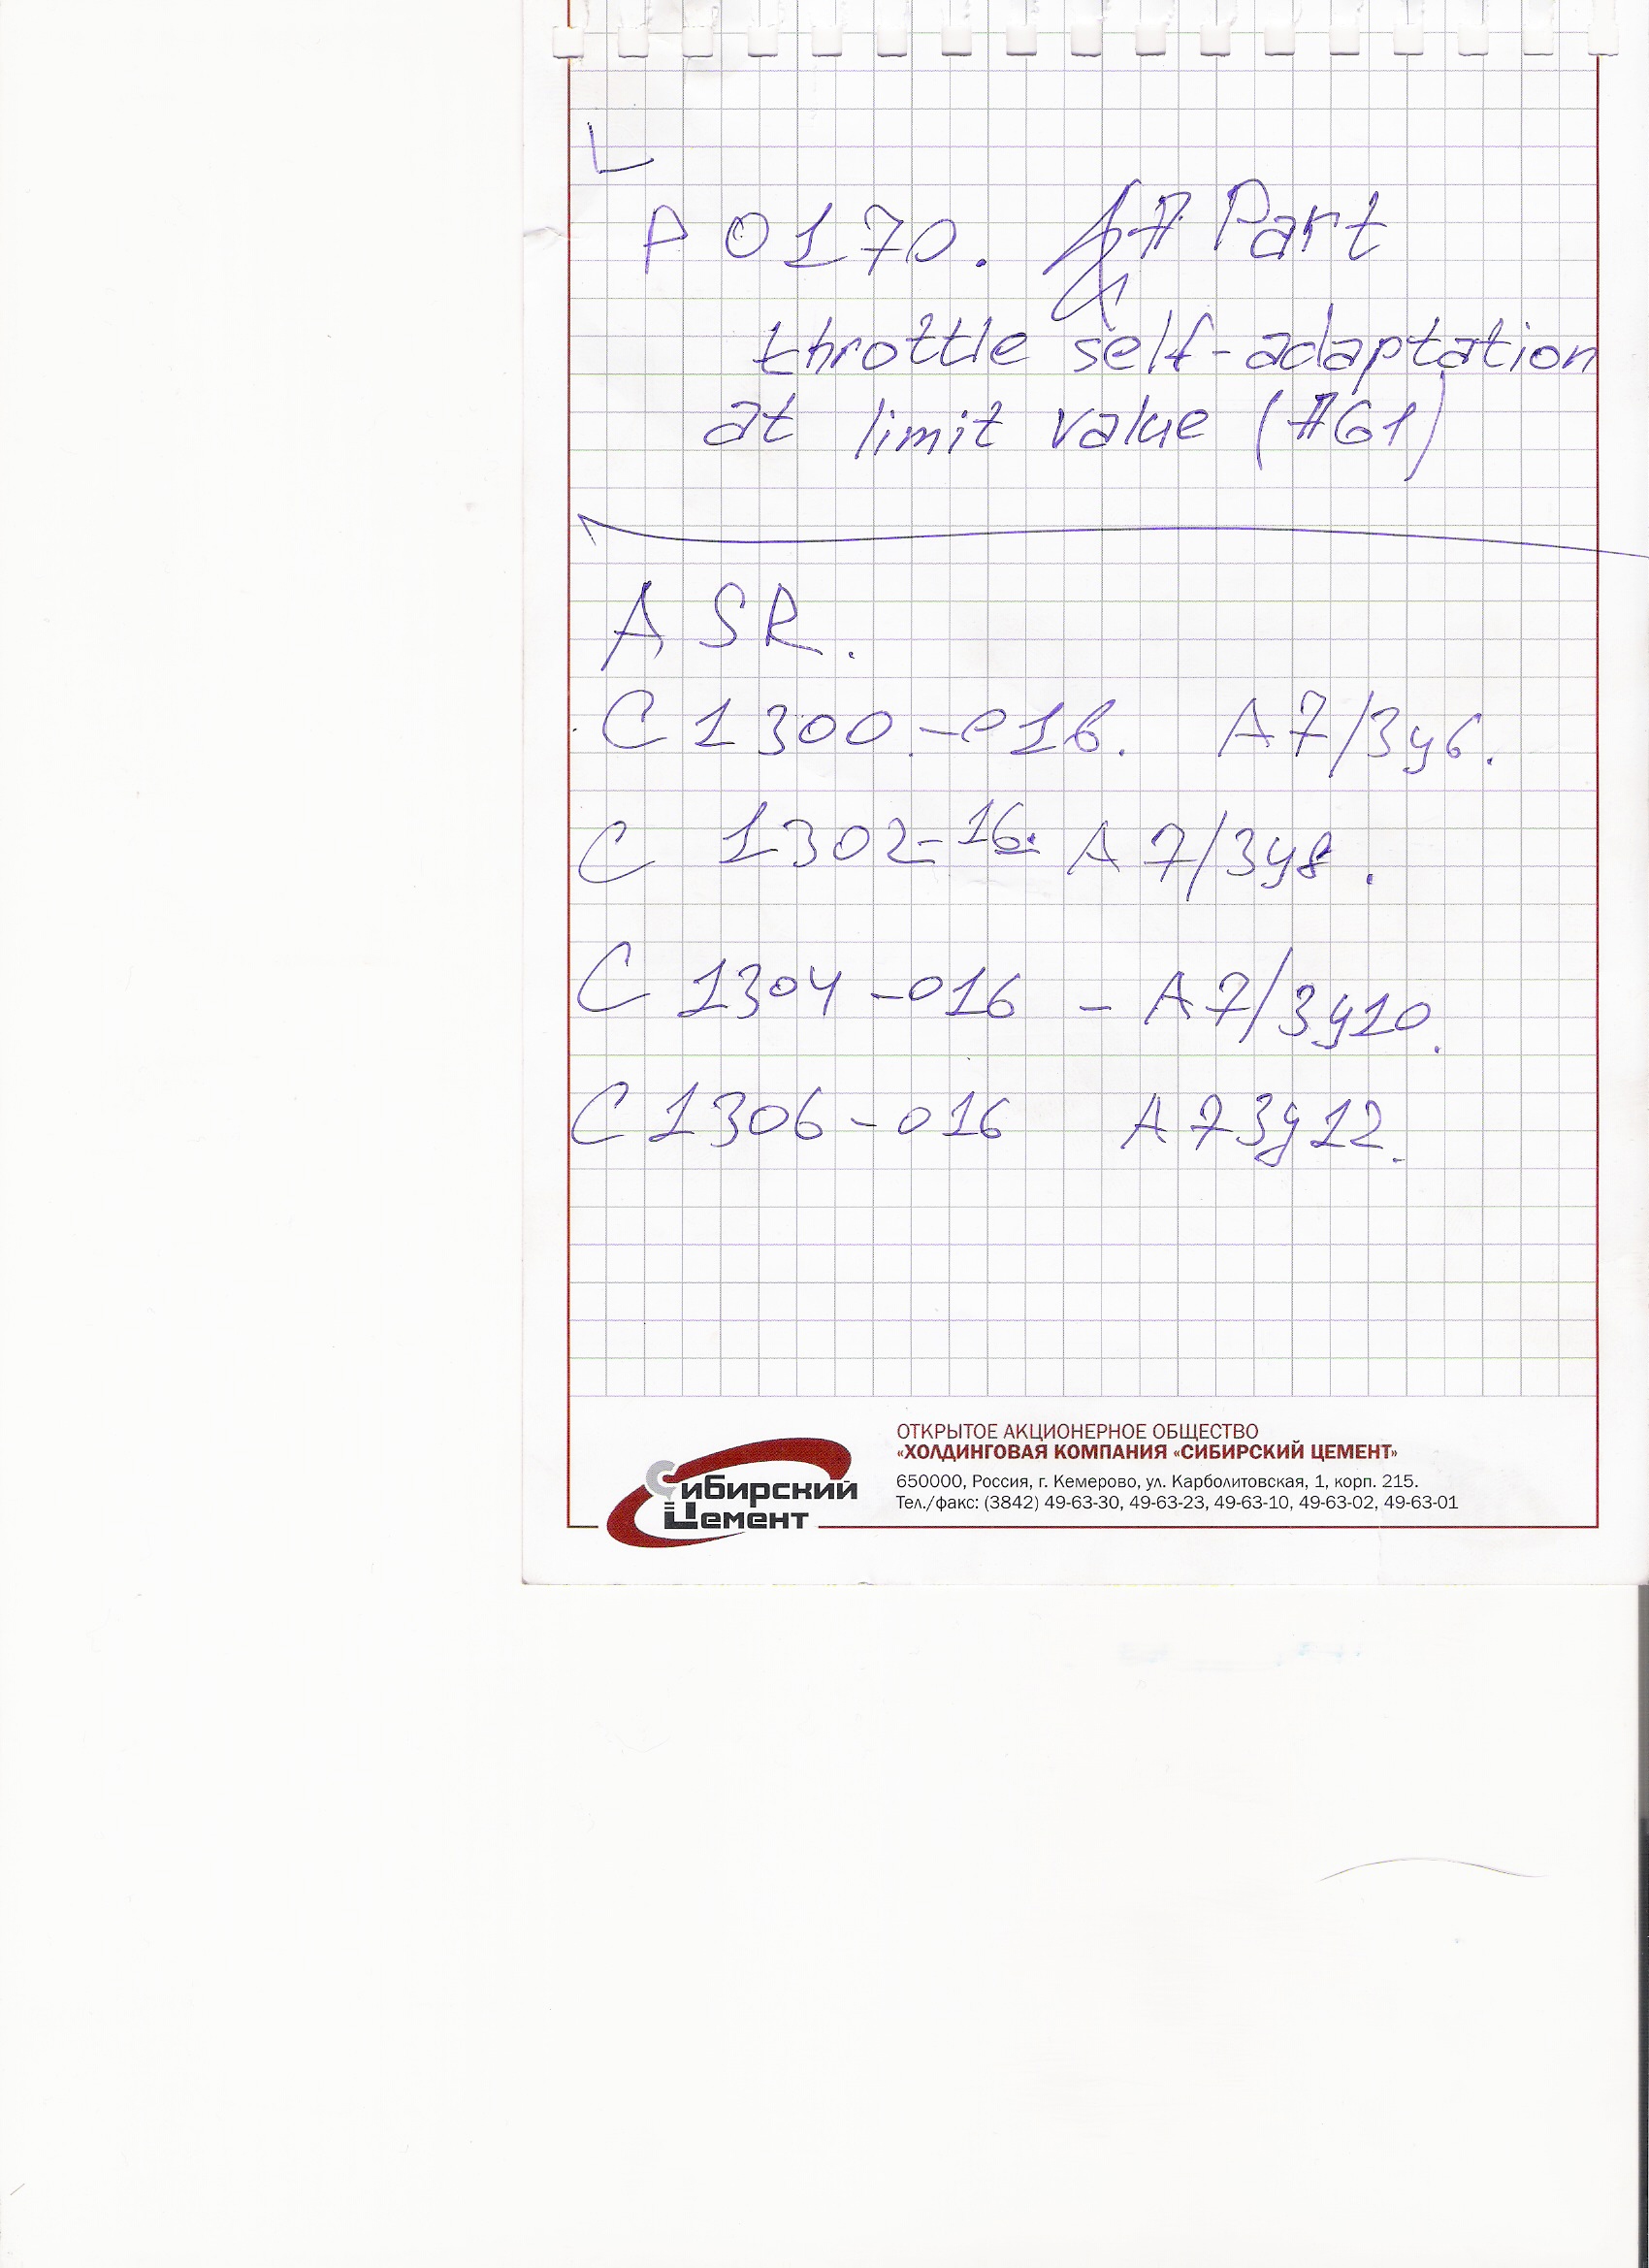 P 0170. # Part
throttle self-adaptation
at limit value (#61)
ASR.
C 1300 - 016. A7/3y6.
C 1302 - 16. A7/3y8.
C 1304 - 016 - A7/3y10.
C 1306 - 016 A73y12.
ОТКРЫТОЕ АКЦИОНЕРНОЕ ОБЩЕСТВО
«ХОЛДИНГОВАЯ КОМПАНИЯ «СИБИРСКИЙ ЦЕМЕНТ»
650000, Россия, г. Кемерово, ул. Карболитовская, 1, корп. 215.
Тел./факс: (3842) 49-63-30, 49-63-23, 49-63-10, 49-63-02, 49-63-01
Сибирский
Цемент